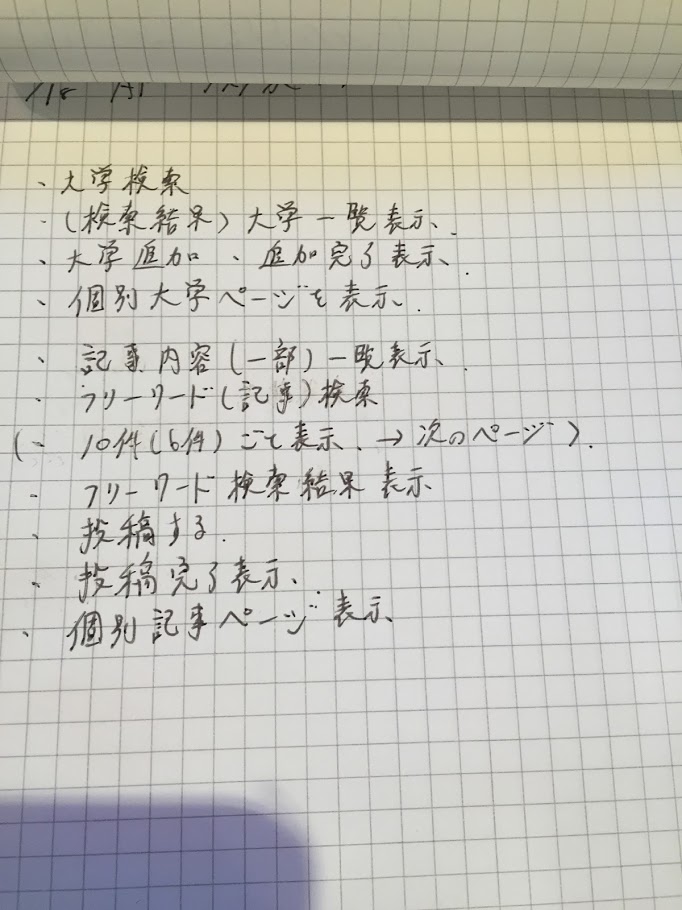 ・大学検索
・(検索結果) 大学一覧表示.
・大学追加、追加完了表示.
・個別大学ページを表示.
・記事内容(一部)一覧表示.
・フリーワード(記事)検索
(・10件(6件)ごと表示. → 次のページ).
・フリーワード検索結果 表示
・投稿する.
・投稿完了表示.
・個別記事ページ表示